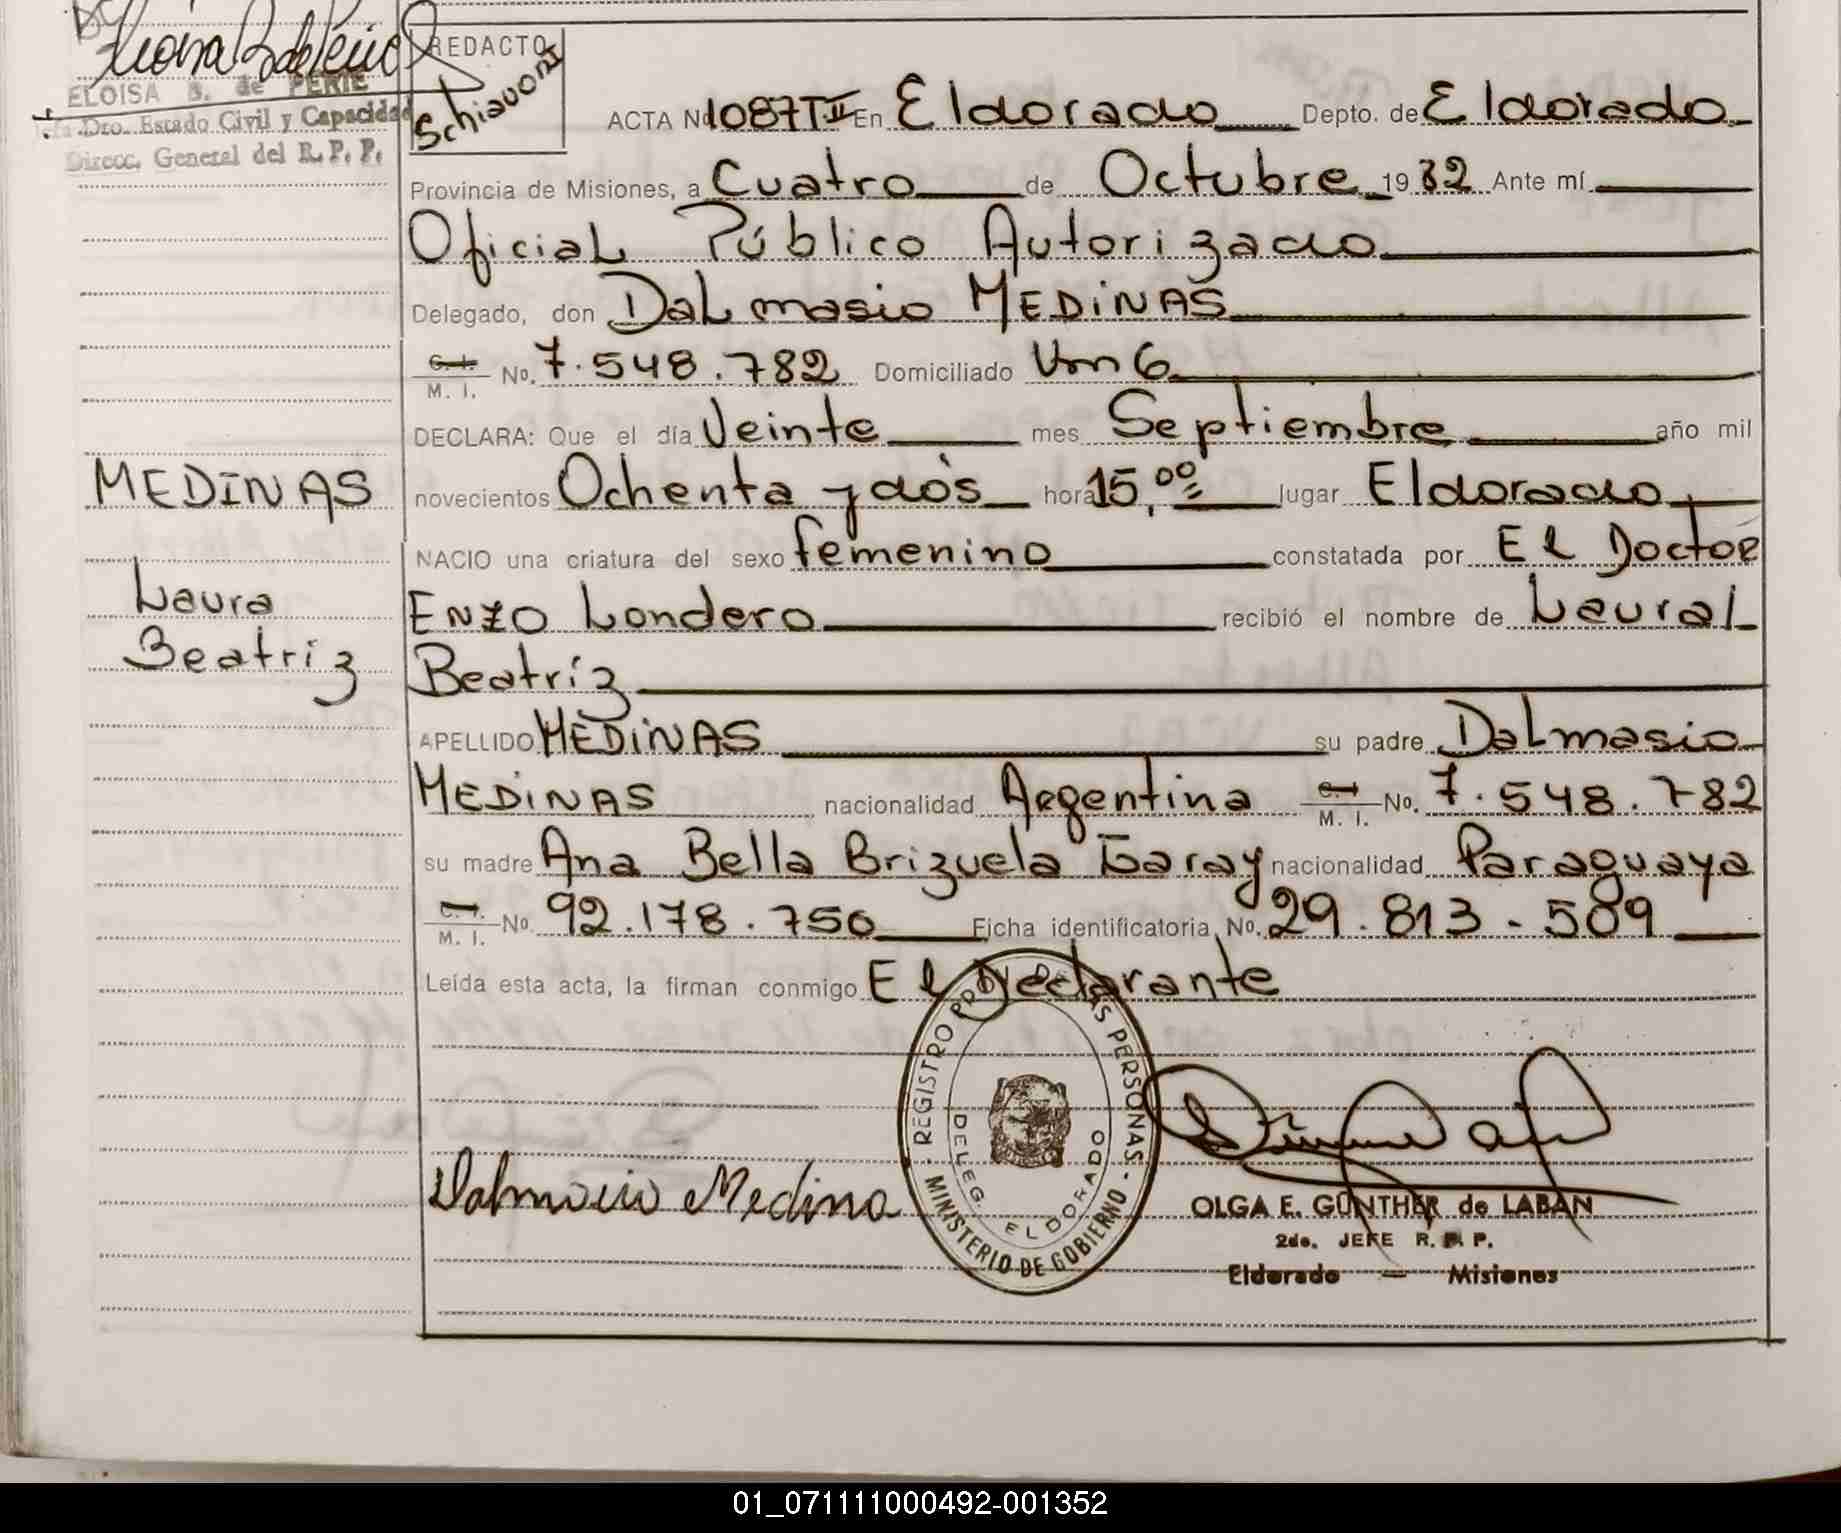 REDACTO
Schiavoni
ELOISA B. de PERIE
Dro. Estado Civil y Capacidad
Direcc. General del R. P. P.
ACTA No 1087 T II En Eldorado Depto. de Eldorado
Provincia de Misiones, a Cuatro de Octubre 1982 Ante mí
Oficial Público Autorizado
Delegado, don Dalmasio MEDINAS
C. I. M. I. No. 7.548.782 Domiciliado Km 6
DECLARA: Que el día Veinte mes Septiembre año mil
MEDINAS
novecientos Ochenta y dós hora 15,00 lugar Eldorado
NACIO una criatura del sexo femenino constatada por El Doctor
Laura
Enzo Londero recibió el nombre de Laura
Beatriz
Beatríz
APELLIDO MEDINAS su padre Dalmasio
MEDINAS nacionalidad Argentina C. I. M. I. No. 7.548.782
su madre Ana Bella Brizuela Garay nacionalidad Paraguaya
C. I. M. I. No. 92.178.750 Ficha identificatoria No. 29.813.509
Leída esta acta, la firman conmigo El Declarante
REGISTRO PROV. DE LAS PERSONAS
DELEG. ELDORADO
MINISTERIO DE GOBIERNO
Dalmacio Medina
OLGA E. GÜNTHER de LABAN
2do. JEFE R. P. P.
Eldorado — Misiones
01_071111000492-001352